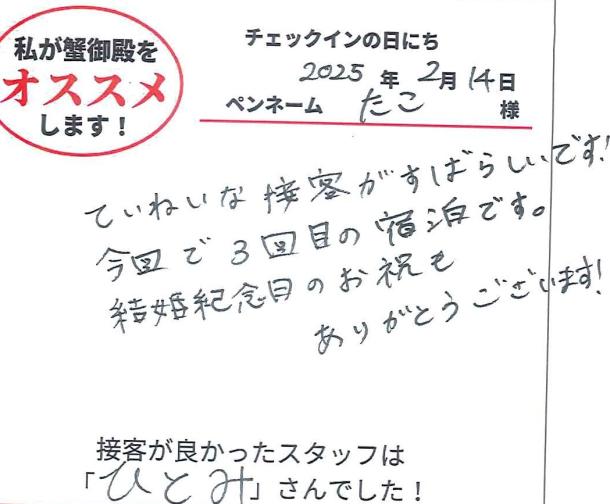 私が蟹御殿を
オススメ
します！
チェックインの日にち
2025 年 2月 14日
ペンネーム たこ 様
ていねいな接客がすばらしいです!
今回で3回目の宿泊です。
結婚紀念日のお祝も
ありがとうございます!
接客が良かったスタッフは
「ひとみ」さんでした！